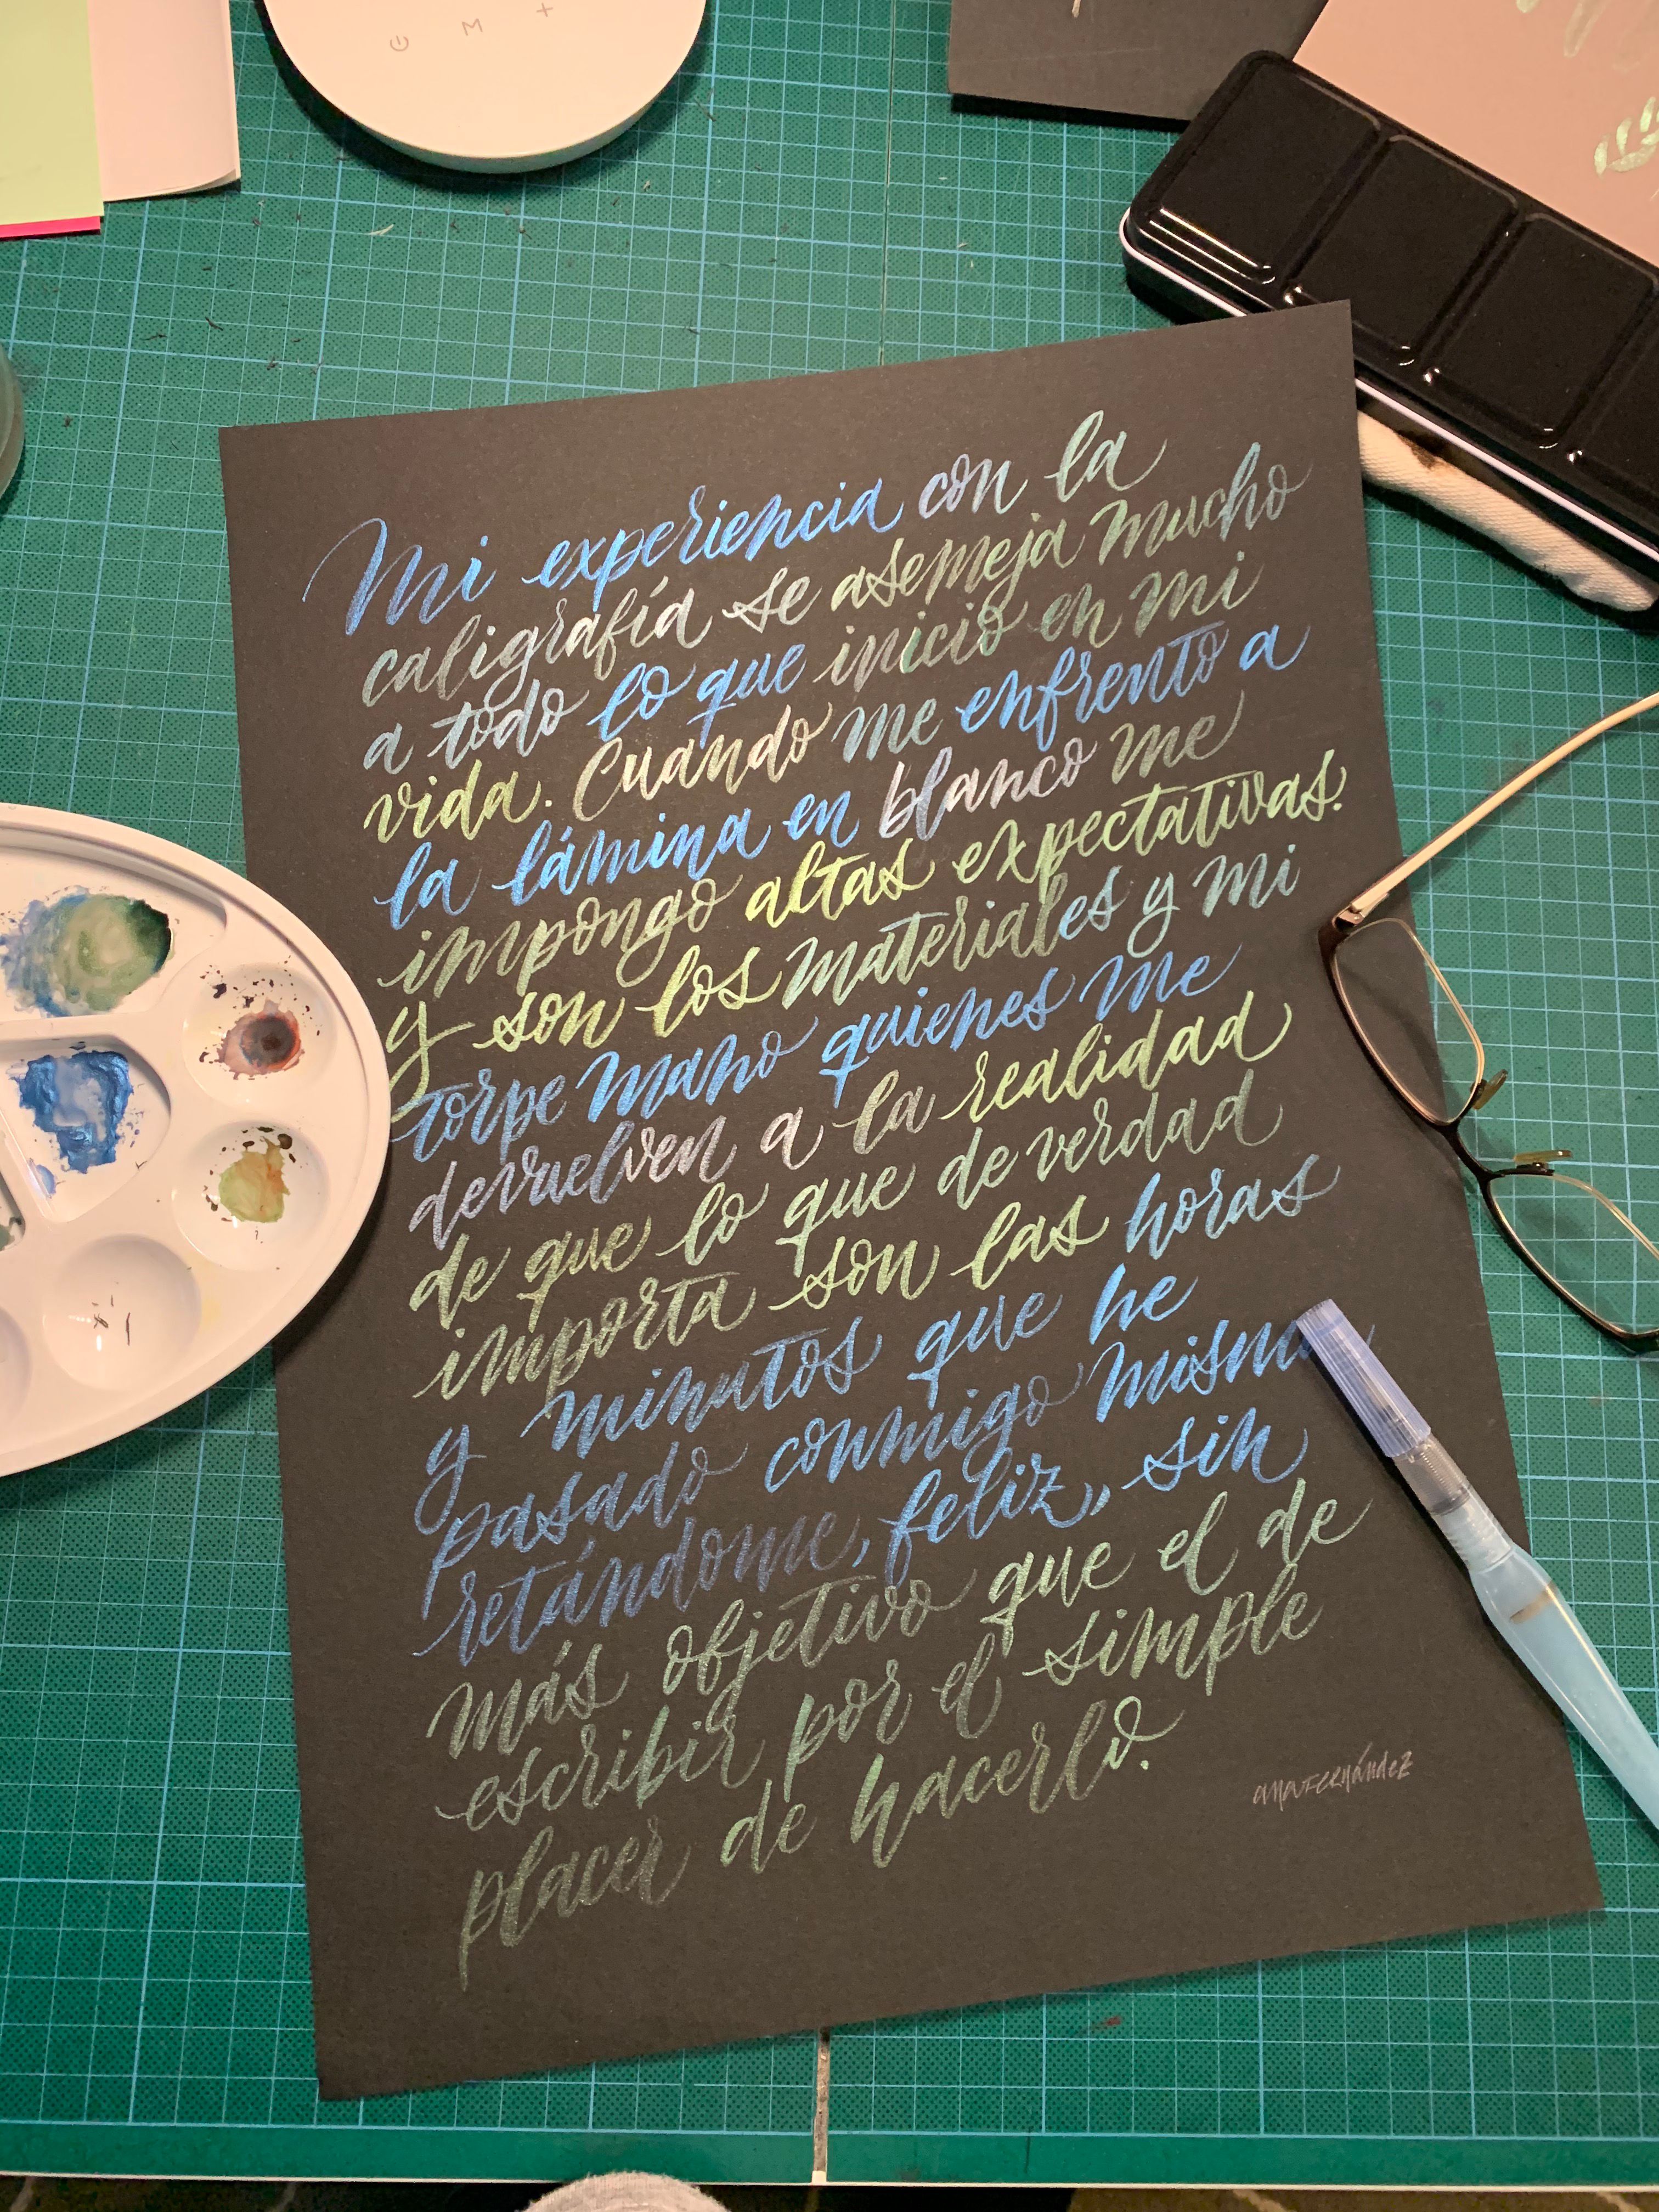 M +
Mi experiencia con la
caligrafía se asemeja mucho
a todo lo que inicio en mi
vida. Cuando me enfrento a
la lámina en blanco me
impongo altas expectativas.
y son los materiales y mi
torpe mano quienes me
devuelven a la realidad
de que lo que de verdad
importa son las horas
y minutos que he
pasado conmigo misma
retándome, feliz, sin
más objetivo que el de
escribir por el simple
placer de hacerlo.